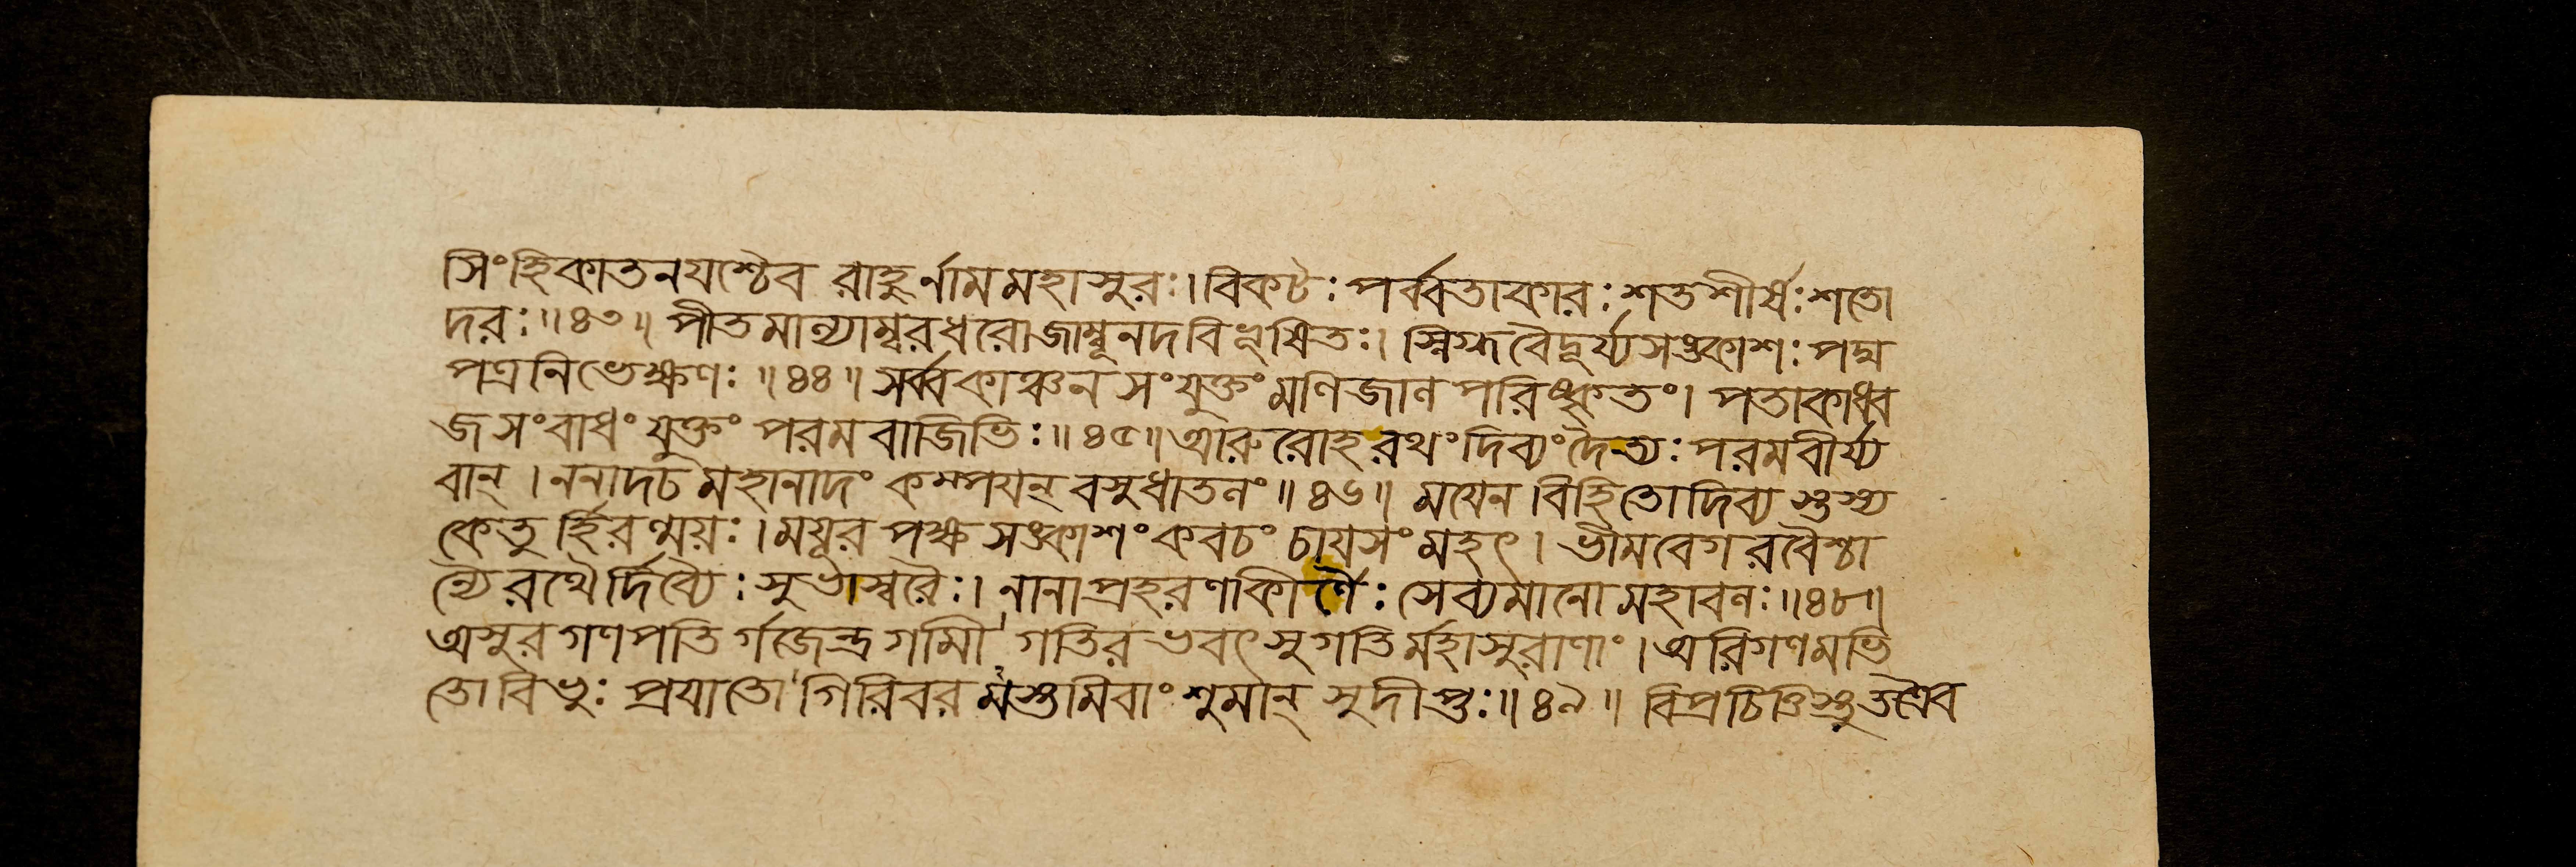 সিংহিকাতনযশ্চৈব রাহুর্নামমহাসুরঃ। বিকটঃ পর্ব্বতাকারঃ শতশীর্ষঃ শতো
দরঃ॥৪৩॥ পীতমাল্যাম্বরধরো জাম্বূনদবিভূষিতঃ। স্নিগ্ধবৈদূর্য্যসঙ্কাশঃ পদ্ম
পত্রনিভেক্ষণঃ॥৪৪॥ সর্ব্বকাঞ্চনসংযুক্তং মণিজালপরিষ্কৃতং। পতাকাধ্ব
জসংবাধং যুক্তং পরমবাজিভিঃ॥৪৫॥ আরুরোহরথংদিব্যংদৈত্যঃ পরমবীর্য্য
বান্। ননাদচ মহানাদং কম্পযন্ বসুধাতলং॥৪৬॥ মযেন বিহিতোদিব্য স্তস্য
কেতু র্হিরণ্ময়ঃ। ময়ূরপক্ষসঙ্কাশং কবচং চাযসং মহৎ। ভীমবেগরবৈশ্চা
ন্যৈরথৈর্দিব্যৈঃ সুভাস্বরৈঃ। নানাপ্রহরণাকীর্ণৈঃ সেব্যমানো মহাবলঃ॥৪৮॥
অসুরগণপতি র্গজেন্দ্রগামী গতিরভবৎ সুগতির্মহাসুরাণাং। অরিগণমভি
তো বিভুঃ প্রযাতো গিরিবর মস্তমিবাংশুমান্ সুদীপ্তঃ॥৪৯॥ বিপ্রচিত্তিস্তুতশ্চৈব